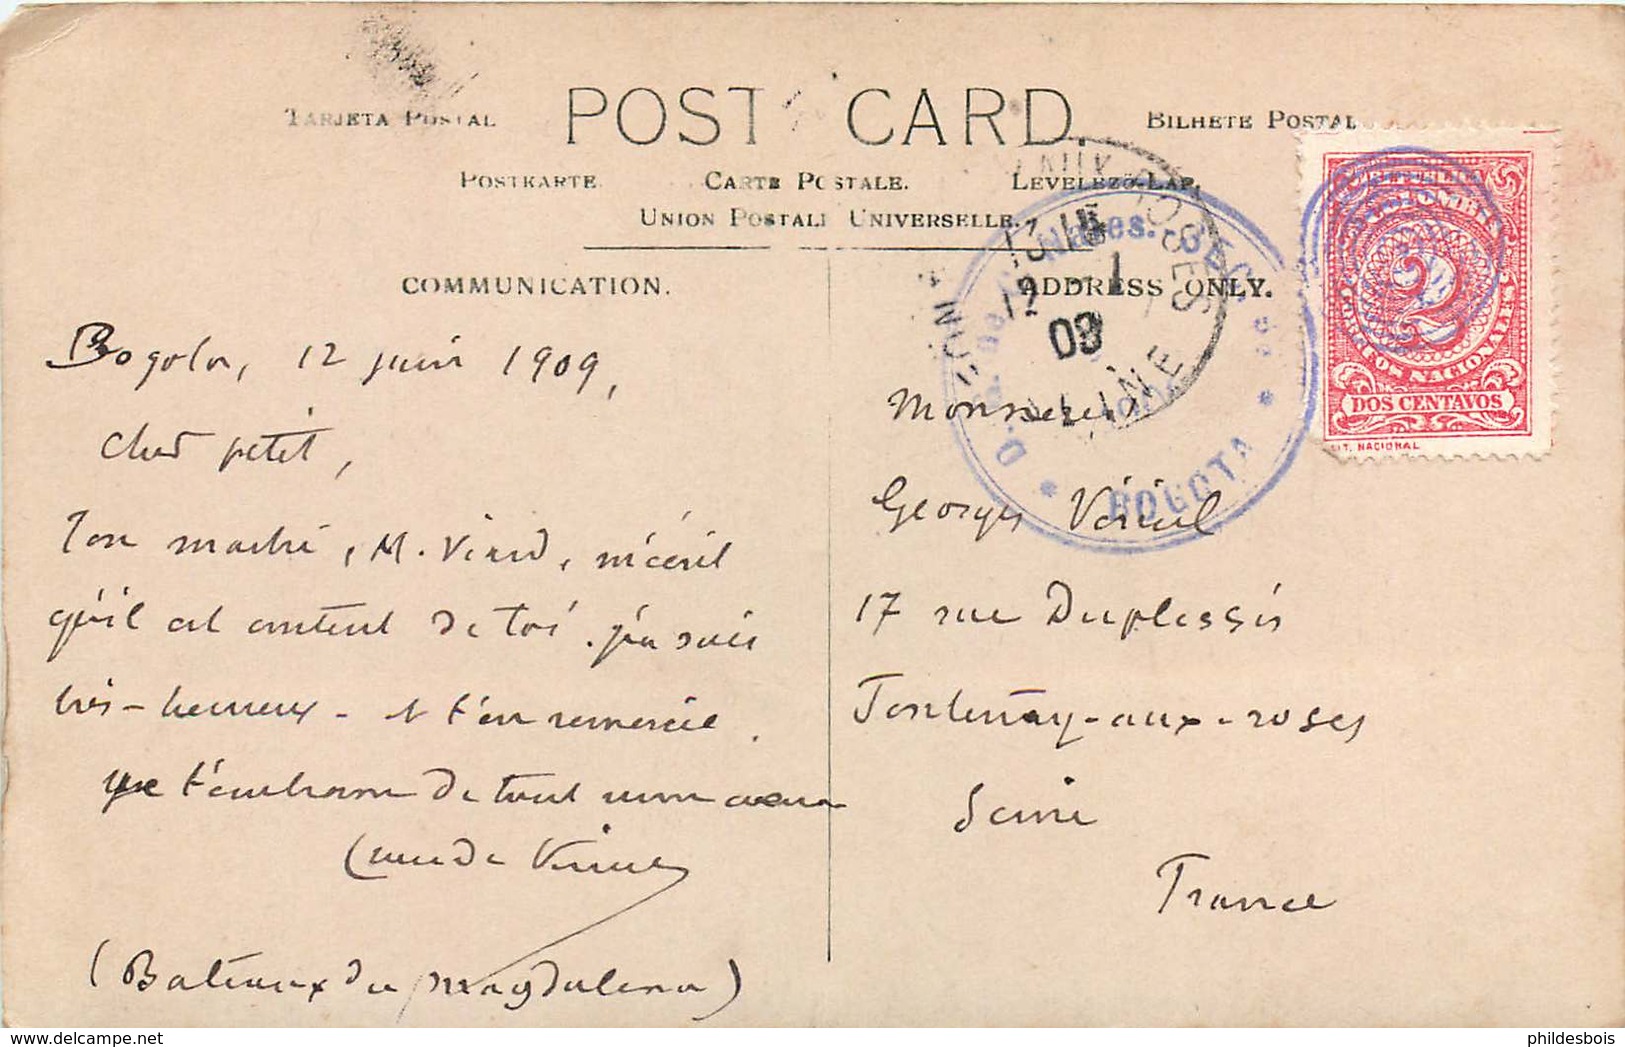 TARJETA POSTAL
POST CARD
BILHETE POSTAL
POSTKARTE.
CARTE POSTALE.
LEVELEZŐ-LAP.
UNION POSTALE UNIVERSELLE.
COMMUNICATION.
ADDRESS ONLY.
Bogota, 12 juin 1909,
Cher petit,
Ton maître, M. Viard, m'écrit
qu'il est content de toi. j'en suis
très-heureux - et t'en remercie.
que t'embrasse de tout mon cœur
(Bateaux du Magdalena)
Monsieur
Georges
17 rue Duplessis
Fontenay-aux-roses
Seine
France
BOGOTA
COLOMBIA
2
CORREOS NACIONALES
DOS CENTAVOS
LIT. NACIONAL
phildesbois